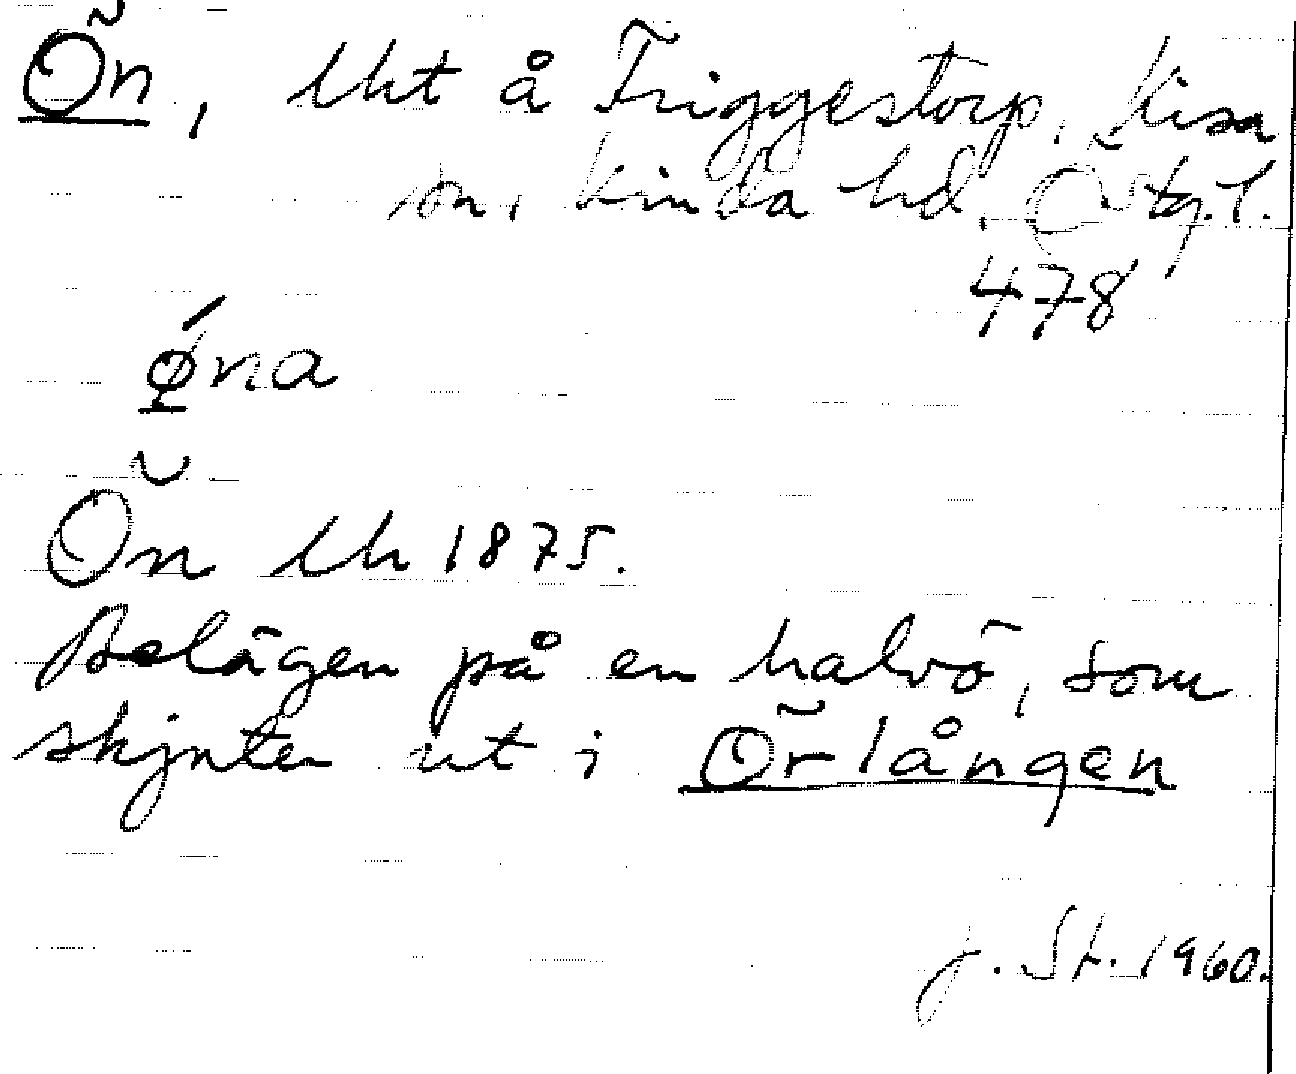 Ön, lht å Triggestorp, Kisa
sn, Kinda hd. Östg.l.
478
ǿna
Ön lh 1875.
Belägen på en halvö, som
skjuter ut i Örlången
J. St. 1960.